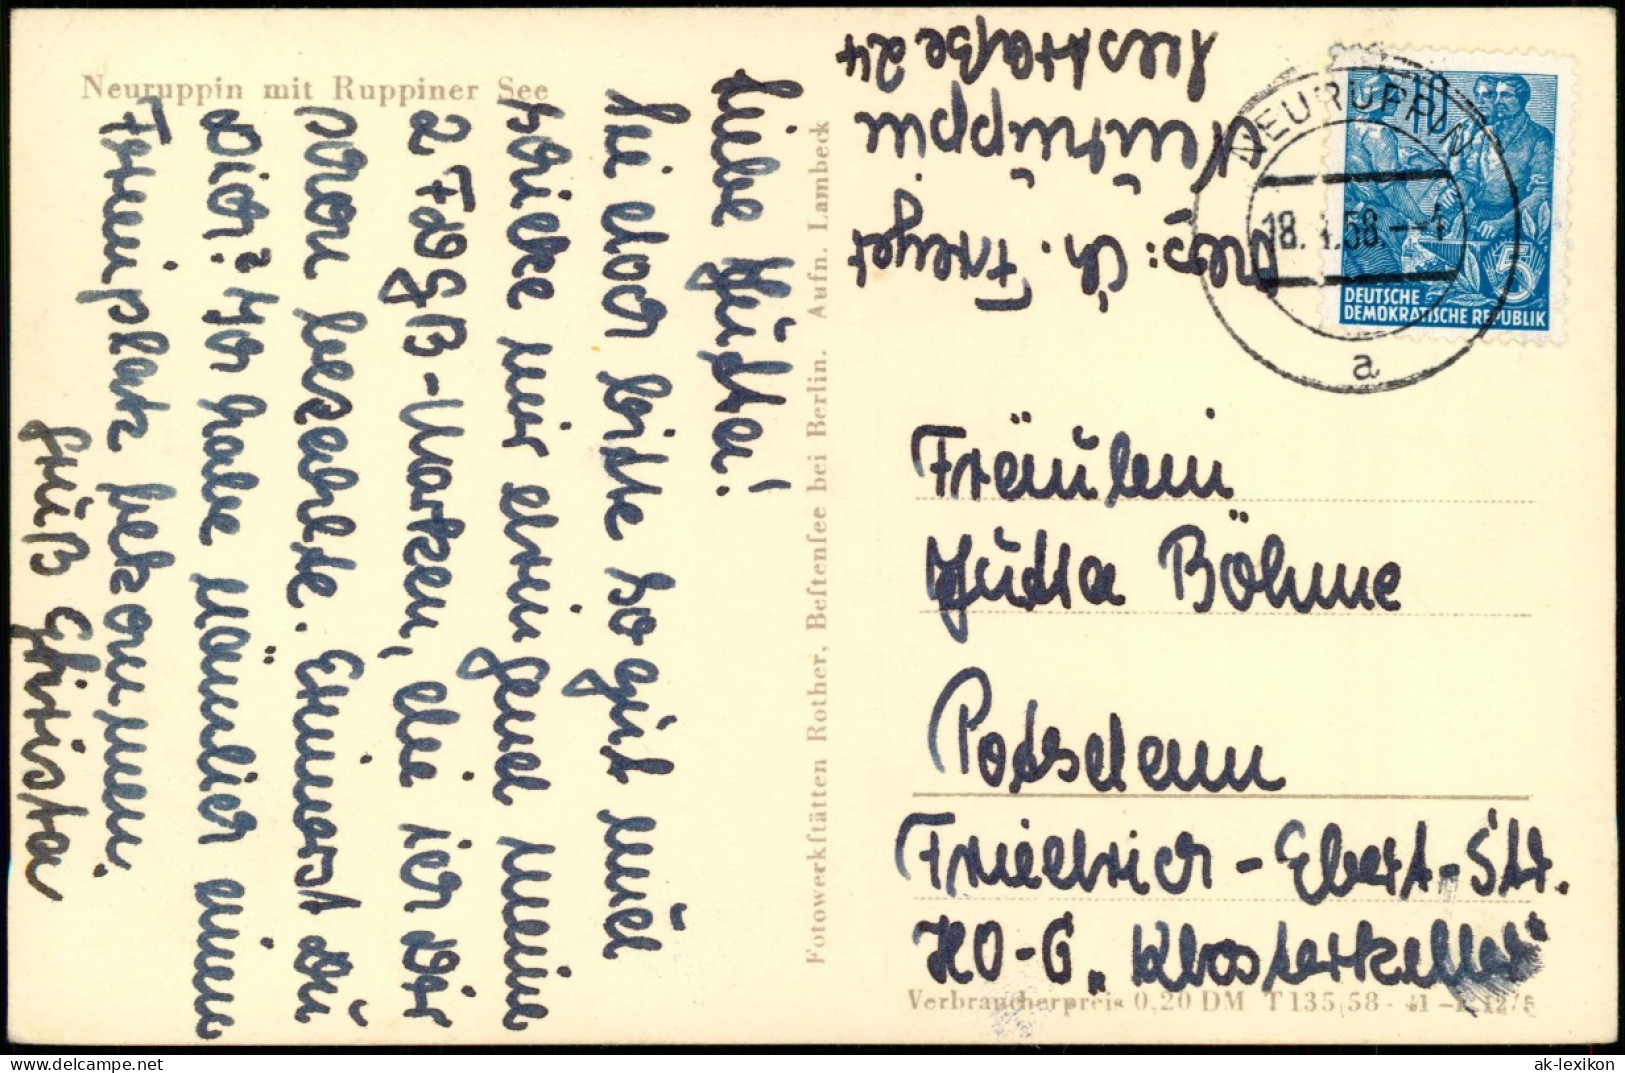 Neuruppin mit Ruppiner See
Liebe Jutta!
Sei doch bitte so gut und
schicke mir dringend meine
2 FDGB-Marken, die ich Dir
schon bezahlte. Erinnerst Du
Dich? Ich habe nämlich einen
Ferienplatz bekommen.
Gruß Christa
Fotowerkſtätten Rother, Beſtenſee bei Berlin. Aufn. Lambeck
Abs: Ch. Freyer
Neuruppin
Seestraße 24
NEURUPPIN
18. 58.
a
5
DEUTSCHE
DEMOKRATISCHE REPUBLIK
Fräulein
Jutta Böhme
Potsdam
Friedrich-Ebert-Str.
HO-G „Klosterkeller"
Verbraucherpreis 0,20 DM T 135/58
ak-lexikon